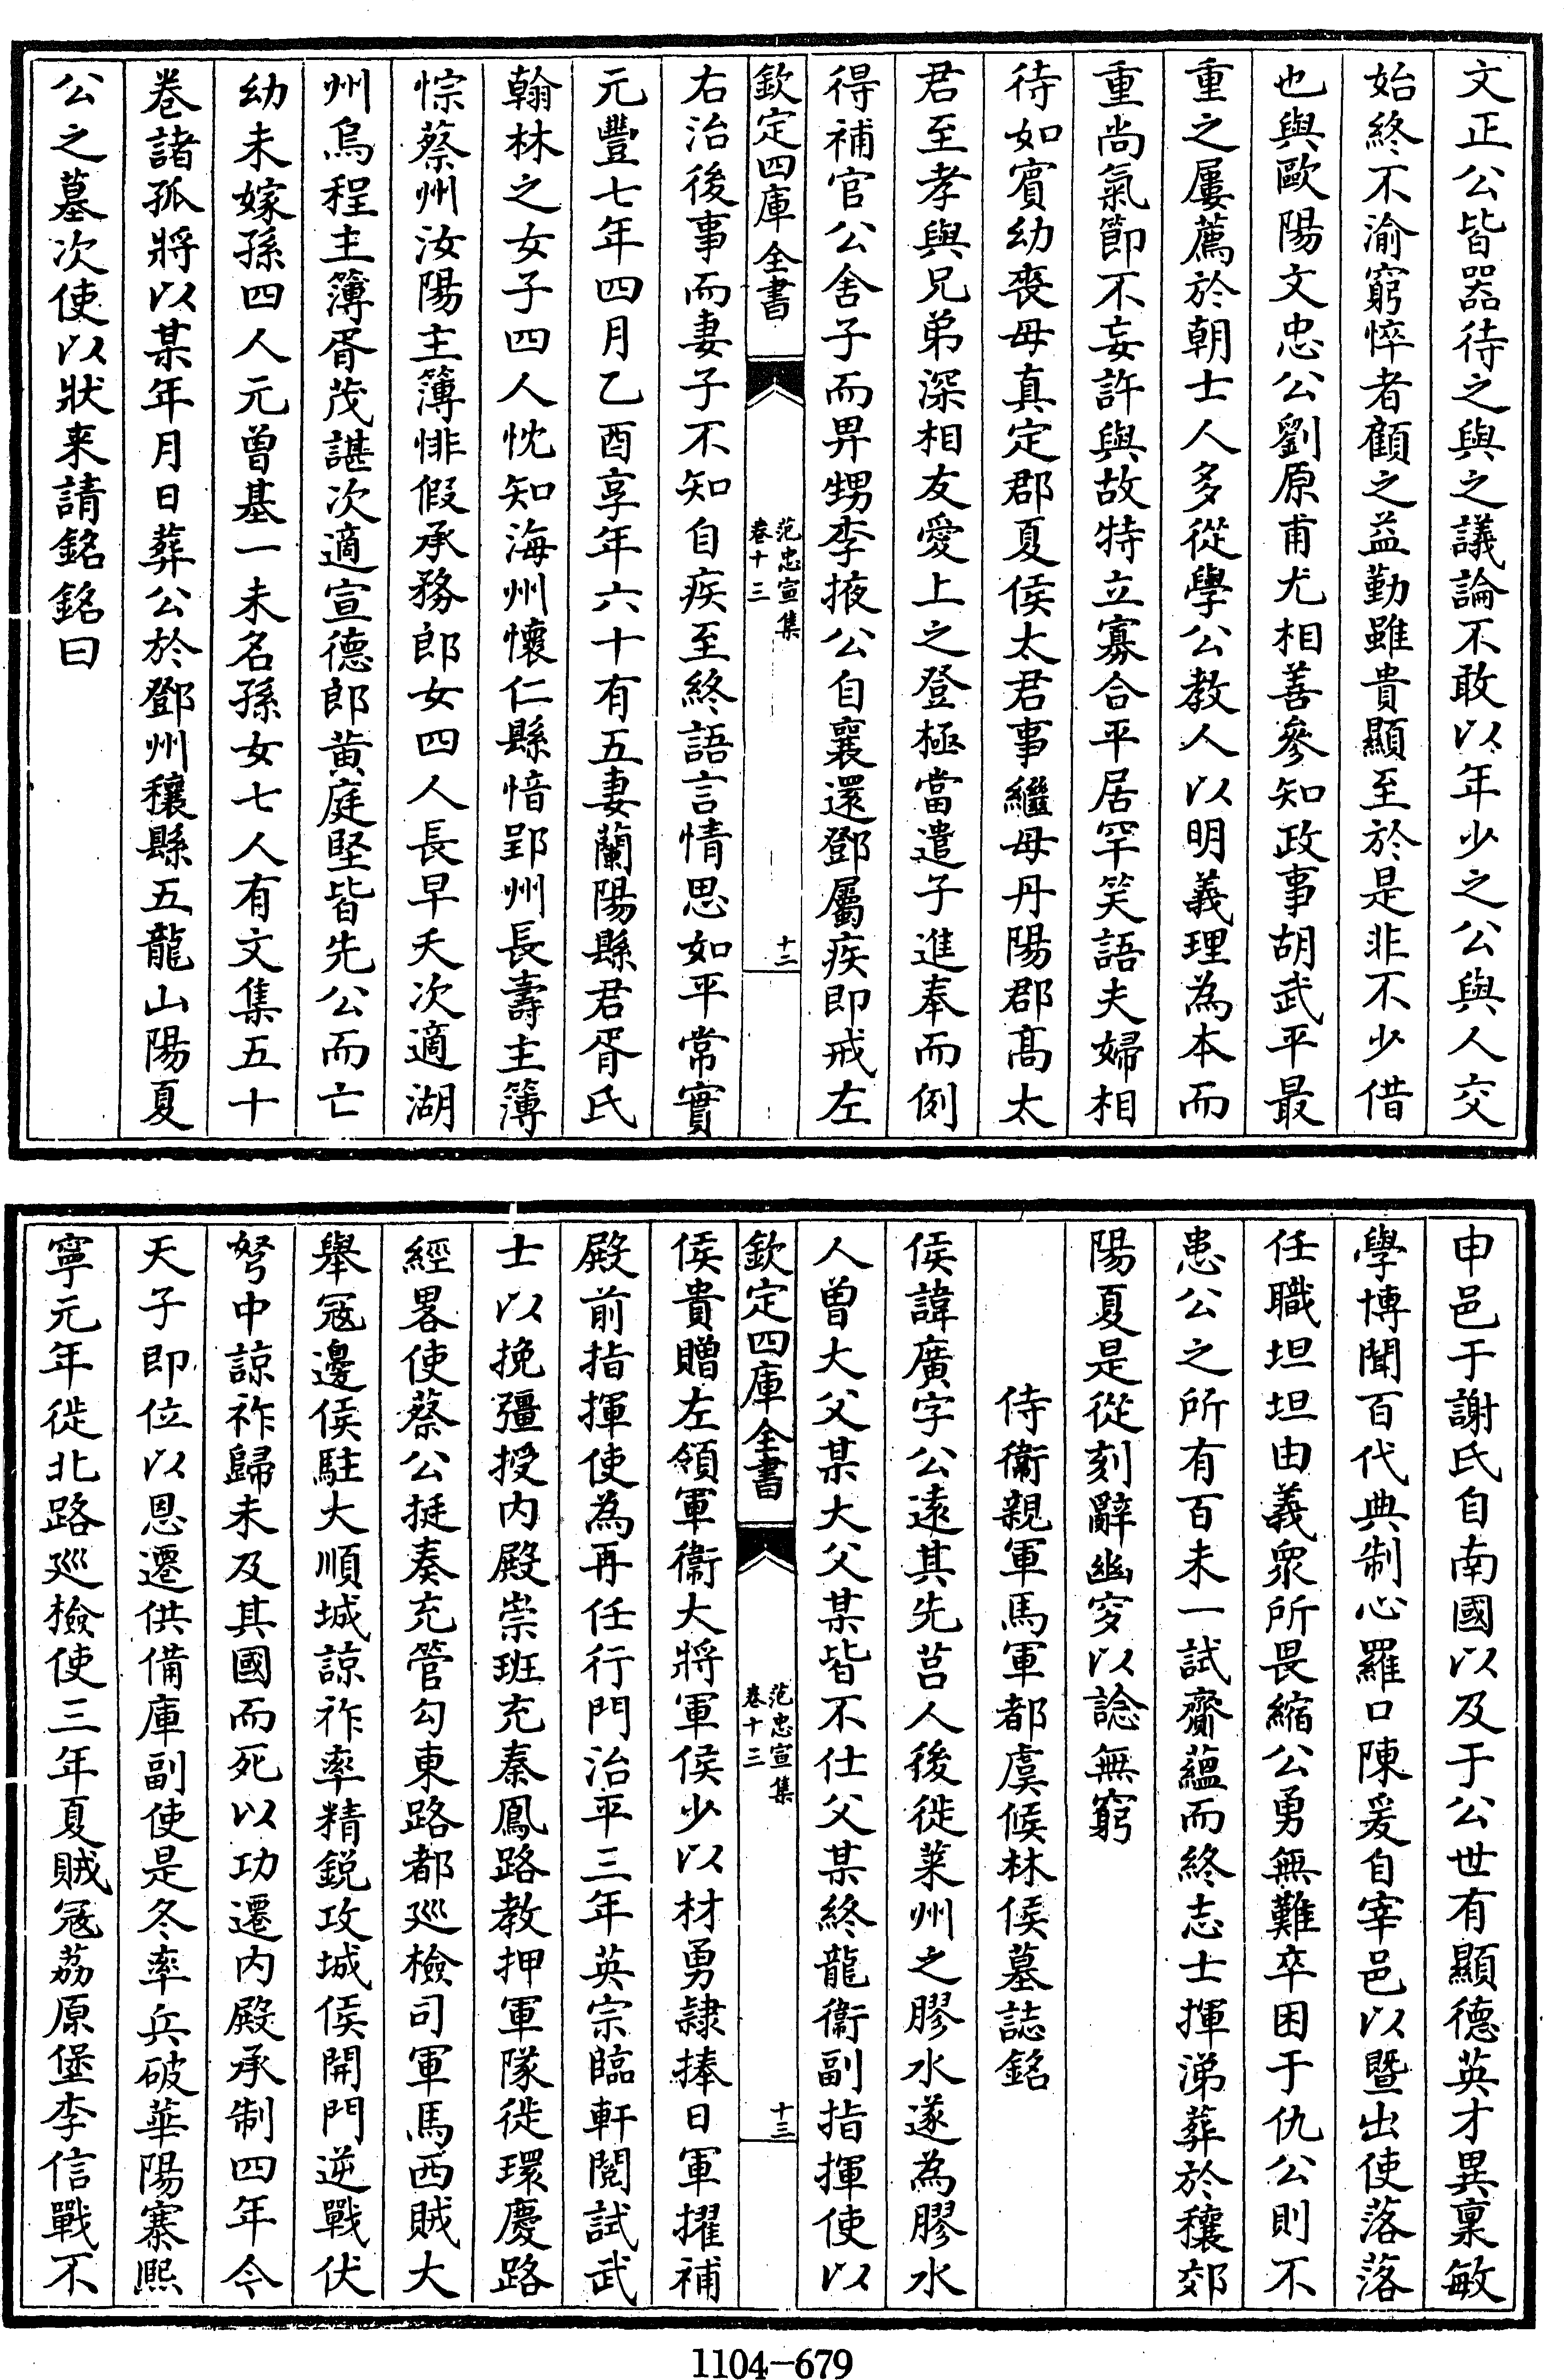 文正公皆器待之與之議論不敢以年少之公與人交
始終不渝窮悴者顧之益勤雖貴顯至於是非不少借
也與歐陽文忠公劉原甫尤相善參知政事胡武平最
重之屢薦於朝士人多從學公教人以明義理為本而
重尚氣節不妄許與故特立寡合平居罕笑語夫婦相
待如賓幼喪母真定郡夏侯太君事繼母丹陽郡髙太
君至孝與兄弟深相友愛上之登極當遣子進奉而例
得補官公舍子而畀甥李掖公自襄還鄧屬疾即戒左
欽定四庫全書
范忠宣集
卷十三
十二
右治後事而妻子不知自疾至終語言情思如平常實
元豐七年四月乙酉享年六十有五妻蘭陽縣君胥氏
翰林之女子四人忱知海州懷仁縣愔郢州長壽主簿
悰蔡州汝陽主簿悱假承務郎女四人長早夭次適湖
州烏程主簿胥茂諶次適宣德郎黄庭堅皆先公而亡
幼未嫁孫四人元曾基一未名孫女七人有文集五十
卷諸孤將以某年月日葬公於鄧州穰縣五龍山陽夏
公之墓次使以狀來請銘銘曰
申邑于謝氏自南國以及于公世有顯德英才異稟敏
學博聞百代典制心羅口陳爰自宰邑以暨出使落落
任職坦坦由義衆所畏縮公勇無難卒困于仇公則不
患公之所有百未一試齎蘊而終志士揮涕葬於穰郊
陽夏是從刻辭幽穸以諗無窮
侍衞親軍馬軍都虞候林侯墓誌銘
侯諱廣字公遠其先莒人後徙萊州之膠水遂為膠水
人曾大父某大父某皆不仕父某終龍衞副指揮使以
欽定四庫全書
范忠宣集
卷十三
十三
侯貴贈左領軍衞大將軍侯少以材勇隷捧日軍擢補
殿前指揮使為再任行門治平三年英宗臨軒閲試武
士以挽彊授内殿崇班充秦鳳路教押軍隊徙環慶路
經畧使蔡公挺奏充管勾東路都廵檢司軍馬西賊大
舉寇邊侯駐大順城諒祚率精鋭攻城侯開門逆戰伏
弩中諒祚歸未及其國而死以功遷内殿承制四年今
天子即位以恩遷供備庫副使是冬率兵破華陽寨熈
寧元年徙北路廵檢使三年夏賊寇荔原堡李信戰不
1104-679